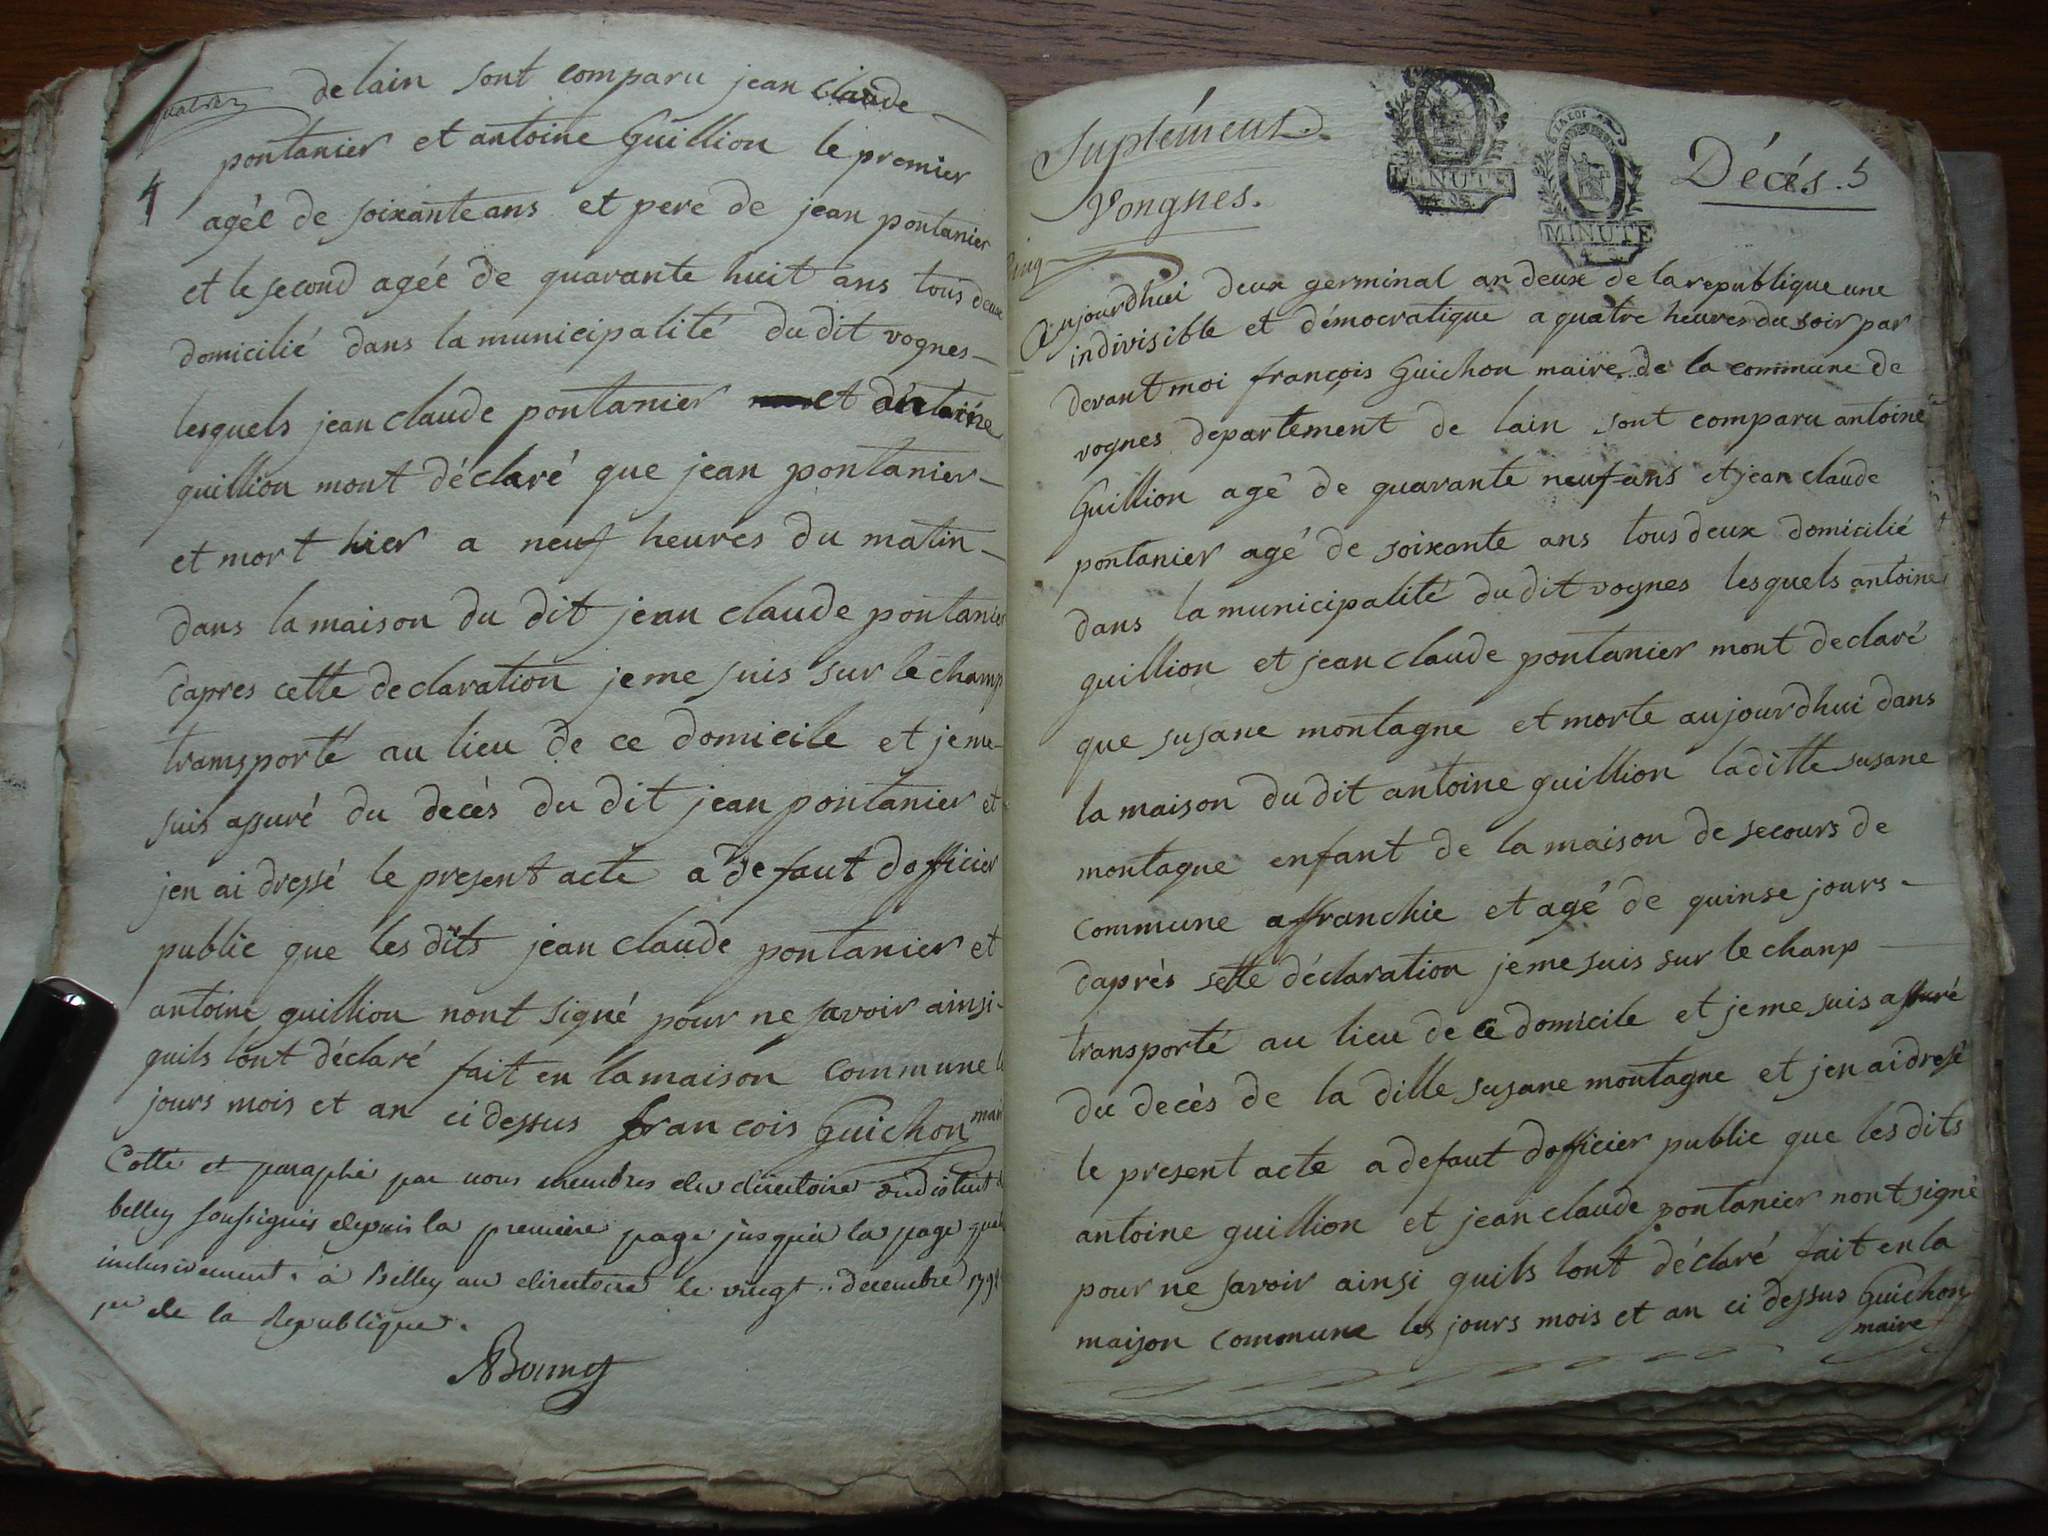 quatre
4
de lain sont comparu jean claude
pontanier et antoine Guillion le premier
agéé de soixante ans et pere de jean pontanier
et le second agéé de quarante huit ans tous deux
domicilié dans la municipalité du dit vognes
lesquels jean claude pontanier et antoine
guillion mont déclaré que jean pontanier
et mort hier a neuf heures du matin
dans la maison du dit jean claude pontanier
dapres cette declaration je me suis sur le champ
transporté au lieu de ce domicile et je me
suis assuré du decès du dit jean pontanier et
jen ai dressé le present acte a defaut dofficier
public que les dits jean claude pontanier et
antoine guillion nont signé pour ne savoir ainsi
quils lont déclaré fait en la maison commune
jours mois et an ci dessus francois Guichon
Cotté et paraphé par nous membres du directoire du district
belley soussignés depuis la premiere page jusqua la page
inclusivement. à Belley au directoire le vingt decembre
de la Republique.
Suplément.
Vongnes.
MINUTE
LA LOI
MINUTE
Décés. 5
cinq
Aujourdhui deux germinal an deux de la republique une
indivisible et démocratique a quatre heures du soir par
devant moi françois Guichon maire de la commune de
vognes departement de lain sont comparu antoine
Guillion agé de quarante neuf ans et jean claude
pontanier agé de soixante ans tous deux domicilié
dans la municipalité du dit vognes lesquels antoine
guillion et jean claude pontanier mont declaré
que susane montagne et morte aujourdhui dans
la maison du dit antoine guillion la ditte susane
montagne enfant de la maison de secours de
commune affranchie et agé de quinse jours
daprès sette déclaration je me suis sur le chanp
transporté au lieu de ce domicile et je me suis assuré
du decès de la ditte susane montagne et jen ai dresé
le present acte a defaut dofficier public que les dits
antoine guillion et jean claude pontanier nont signé
pour ne savoir ainsi quils lont déclaré fait en la
maison commune les jours mois et an ci dessus Guichon
maire